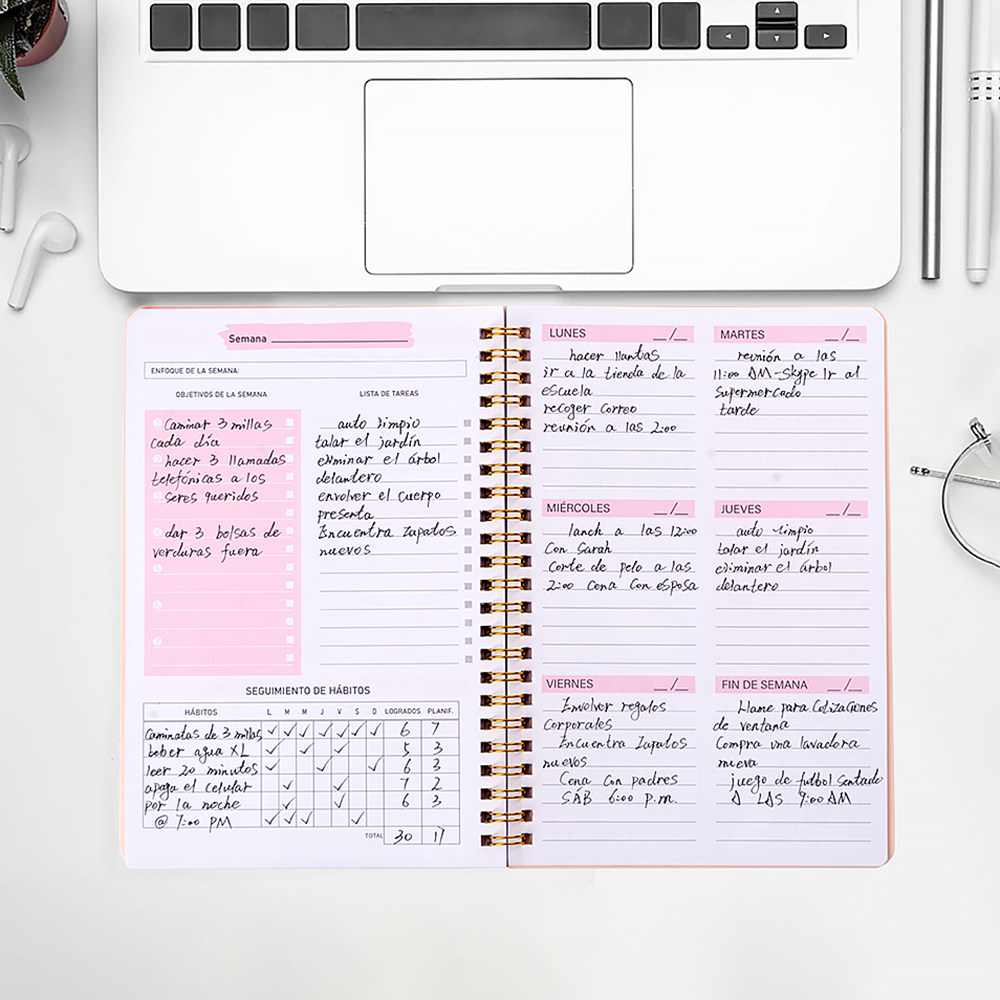 Semana
ENFOQUE DE LA SEMANA:
OBJETIVOS DE LA SEMANA
1 Caminar 3 millas
cada día
2 hacer 3 llamadas
telefónicas a los
3 seres queridos
4 dar 3 bolsas de
verduras fuera
5
6
7
LISTA DE TAREAS
auto limpio
talar el jardín
eliminar el árbol
delantero
envolver el cuerpo
presenta
Encuentra Zapatos
nuevos
SEGUIMIENTO DE HÁBITOS
HÁBITOS L M M J V S D LOGRADOS PLANIF.
Caminatas de 3 millas ✓ ✓ ✓ ✓ ✓ ✓ ✓ 6 7
beber agua XL ✓ ✓ ✓ 5 3
leer 20 minutos ✓ ✓ ✓ 6 3
apaga el celular ✓ ✓ 7 2
por la noche ✓ ✓ 6 3
@ 7:00 PM ✓ ✓ ✓ ✓
TOTAL 30 17
LUNES __/__
hacer llantas
ir a la tienda de la
escuela
recoger correo
reunión a las 2:00
MARTES __/__
reunión a las
11:00 AM-Skype Ir al
Supermercado
tarde
MIÉRCOLES __/__
lanch a las 12:00
Con Sarah
Corte de pelo a las
2:00 Cena Con esposa
JUEVES __/__
auto limpio
talar el jardín
eliminar el árbol
delantero
VIERNES __/__
Envolver regalos
Corporales
Encuentra Zapatos
nuevos
Cena Con padres
SÁB 6:00 p.m.
FIN DE SEMANA __/__
Llame para Cotizaciones
de ventana
Compra una lavadora
nueva
juego de futbol Sentado
A LAS 9:00 AM